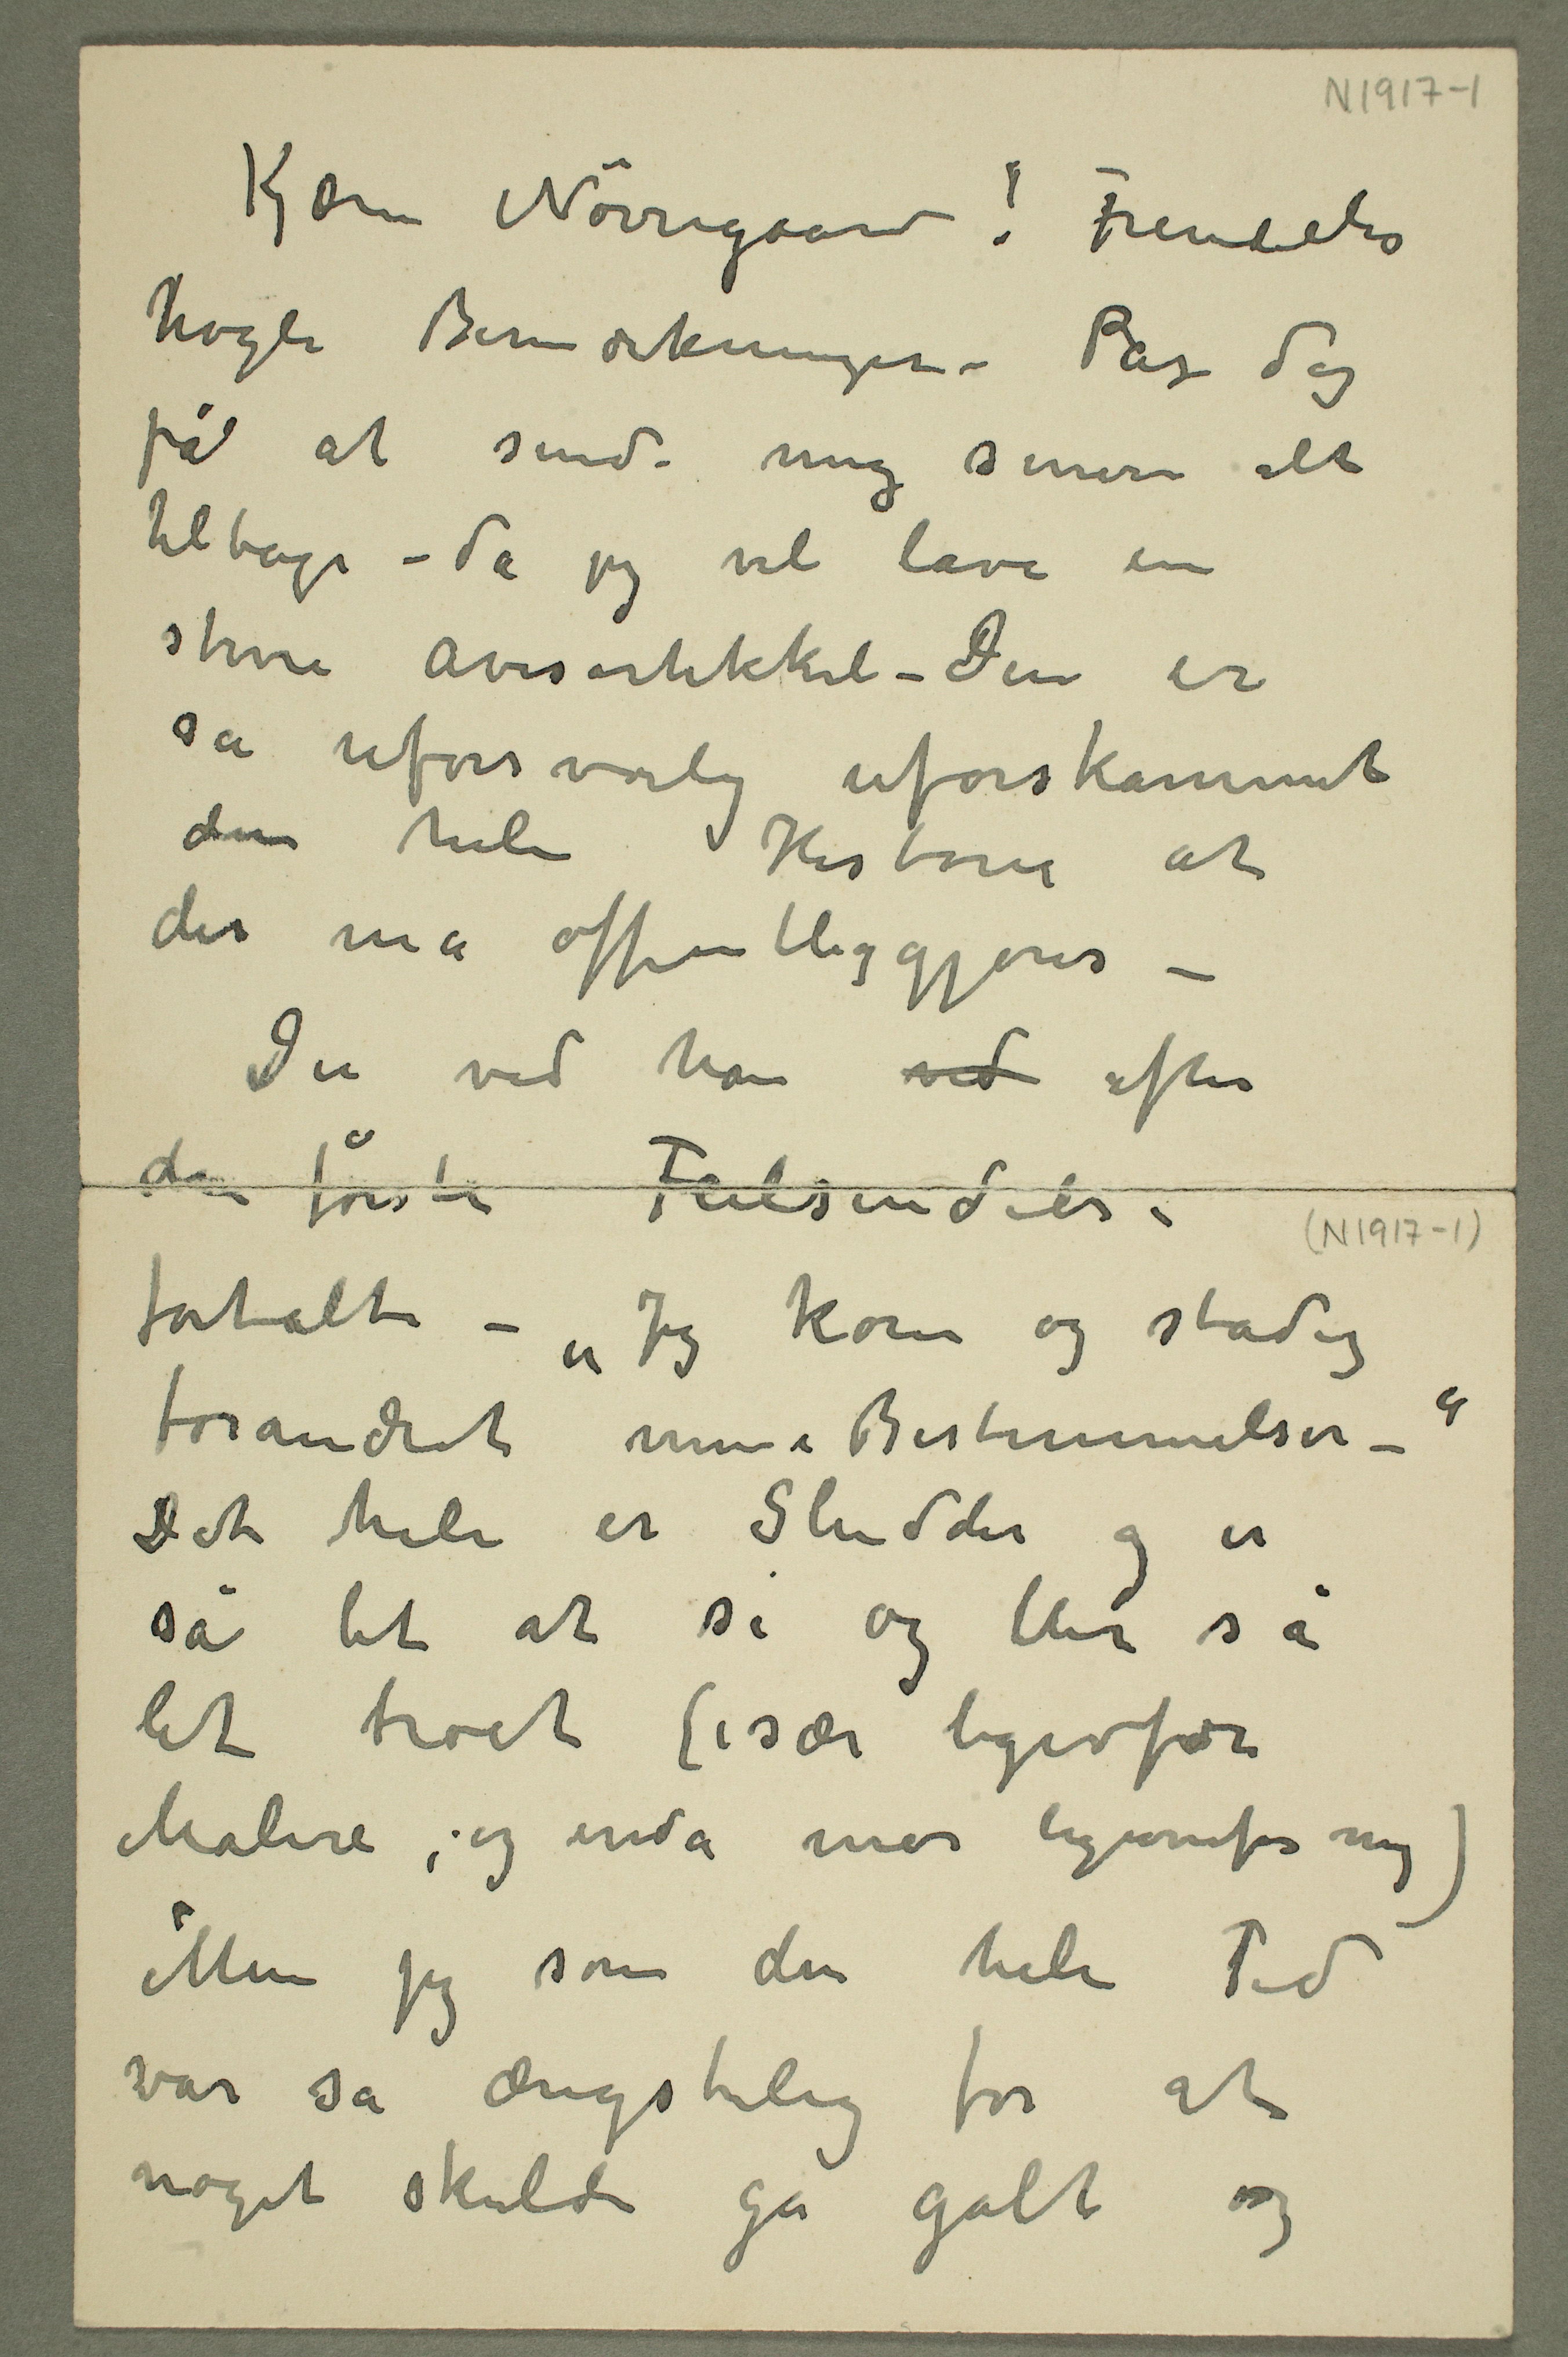 N1917-1
Kjære Nörregaard! Fremdeles
nogle Bemærkninger – Pas dog
på at sende mig senere alt
tilbage – da jeg vil lave en
större avisartikkel – Den er
så uforsvarlig uforskammet
den hele Historie at
der må offentliggjøres –
Du ved han ved efter
den förste Feilsendelse
fortalte – „Jeg kom og stadig
forandret mine Bestemmelser –“
Det hele er Sludder og er
så let at si og blir så
let troet (især ligeofor
Malere, og enda mer ligeoverfor mig)
Men jeg som den hele Tid
var så ængstelig for at
noget skulde gå galt og
(N1917-1)